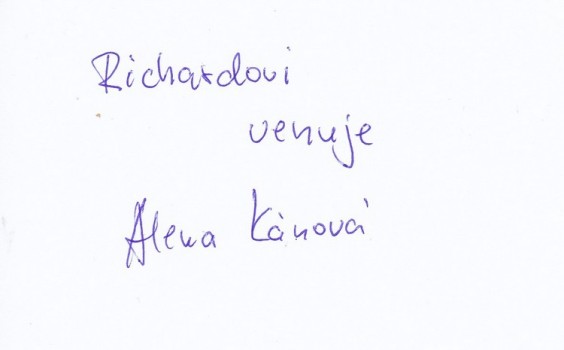 Richardovi
venuje
Alena Kánová